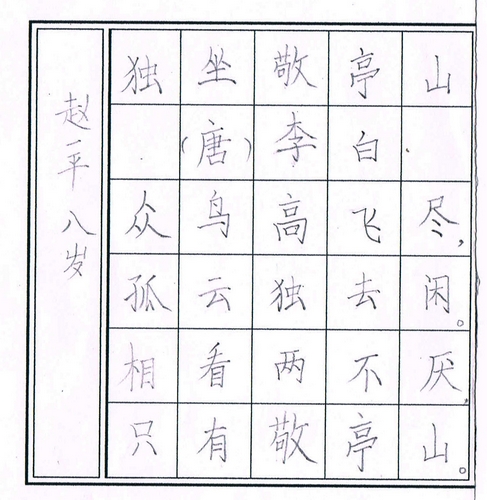 独坐敬亭山
（唐）李白
众鸟高飞尽，
孤云独去闲。
相看两不厌，
只有敬亭山。
赵一平八岁